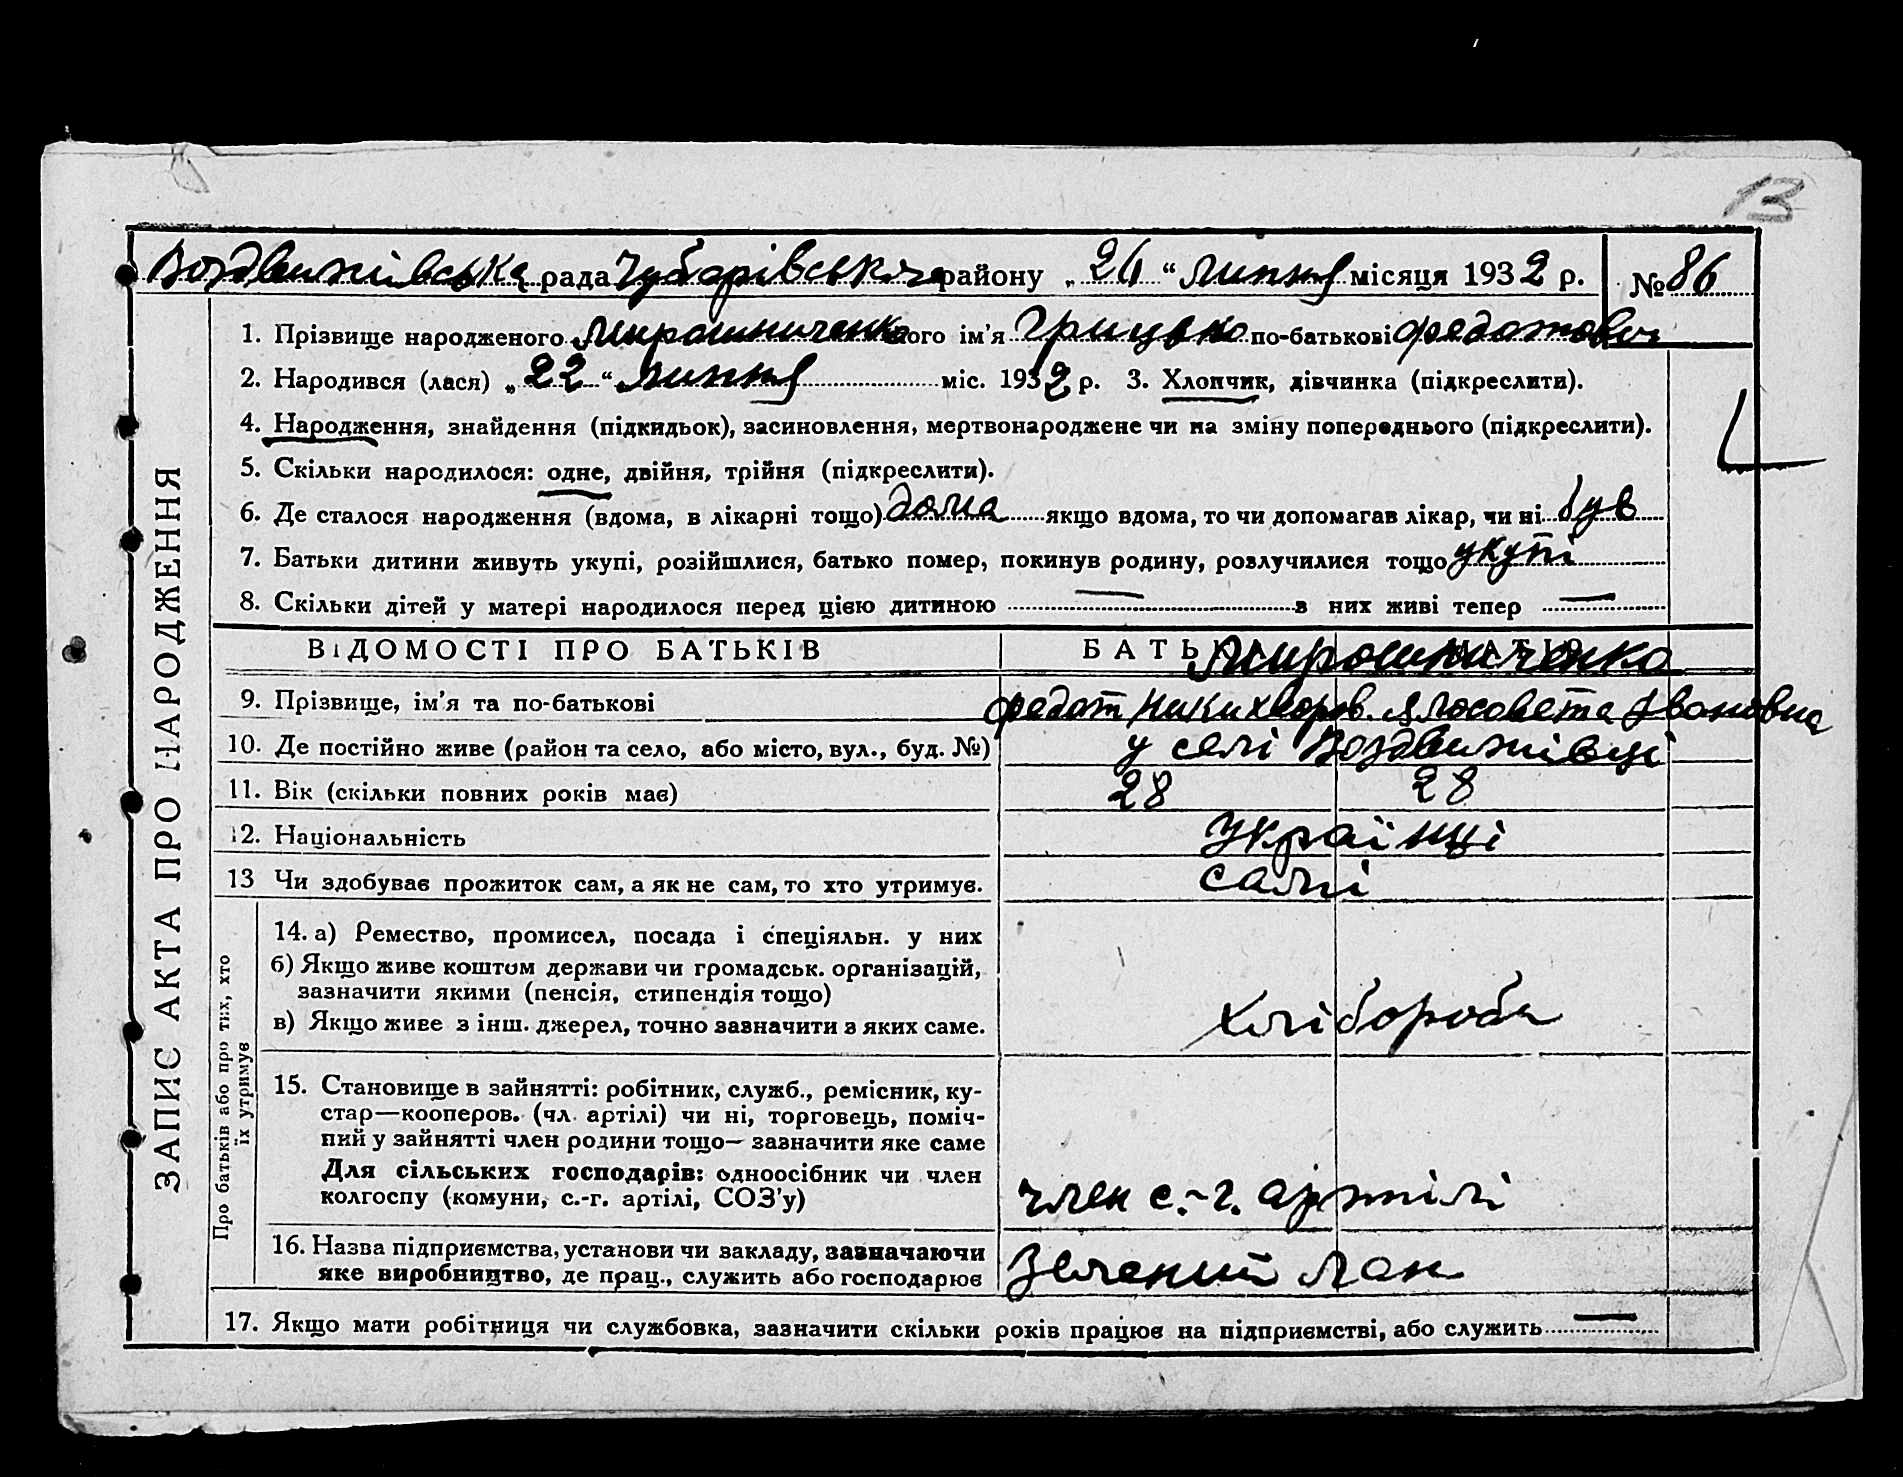 13
Воздвижівська рада Чубарівського району „ 24 “ липня місяця 1932 р. № 86
1. Прізвище народженого Мирошниченко його ім'я Грицько по-батькові Федотович
2. Народився (лася) „ 22 “ липня міс. 1932 р. 3. Хлопчик, дівчинка (підкреслити).
4. Народження, знайдення (підкидьок), засиновлення, мертвонароджене чи на зміну попереднього (підкреслити).
5. Скільки народилося: одне, двійня, трійня (підкреслити).
6. Де сталося народження (вдома, в лікарні тощо) дома якщо вдома, то чи допомагав лікар, чи ні був
7. Батьки дитини живуть укупі, розійшлися, батько помер, покинув родину, розлучилися тощо укупі
8. Скільки дітей у матері народилося перед цією дитиною — з них живі тепер —
ВІДОМОСТІ ПРО БАТЬКІВ БАТЬКО МАТІР
Мирошниченко
9. Прізвище, ім'я та по-батькові Федот Никихворов. Ялосовета Івановна
10. Де постійно живе (район та село, або місто, вул., буд. №) у селі Воздвижівці
11. Вік (скільки повних років має) 28 28
12. Національність Українці
13 Чи здобуває прожиток сам, а як не сам, то хто утримує. самі
14. а) Ремество, промисел, посада і спеціяльн. у них
б) Якщо живе коштом держави чи громадськ. організацій,
зазначити якими (пенсія, стипендія тощо)
в) Якщо живе з інш. джерел, точно зазначити з яких саме. Хлібороби
15. Становище в зайнятті: робітник, служб., ремісник, ку-
стар—кооперов. (чл. артілі) чи ні, торговець, поміч-
ний у зайнятті член родини тощо— зазначити яке саме
Для сільських господарів: одноосібник чи член
колгоспу (комуни, с.-г. артілі, СОЗ'у) член с.-г. артілі
16. Назва підприємства, установи чи закладу, зазначаючи
яке виробництво, де прац., служить або господарює Зелений Лан
17. Якщо мати робітниця чи службовка, зазначити скільки років працює на підприємстві, або служить —
ЗАПИС АКТА ПРО НАРОДЖЕННЯ
Про батьків або про тих, хто
їх утримує